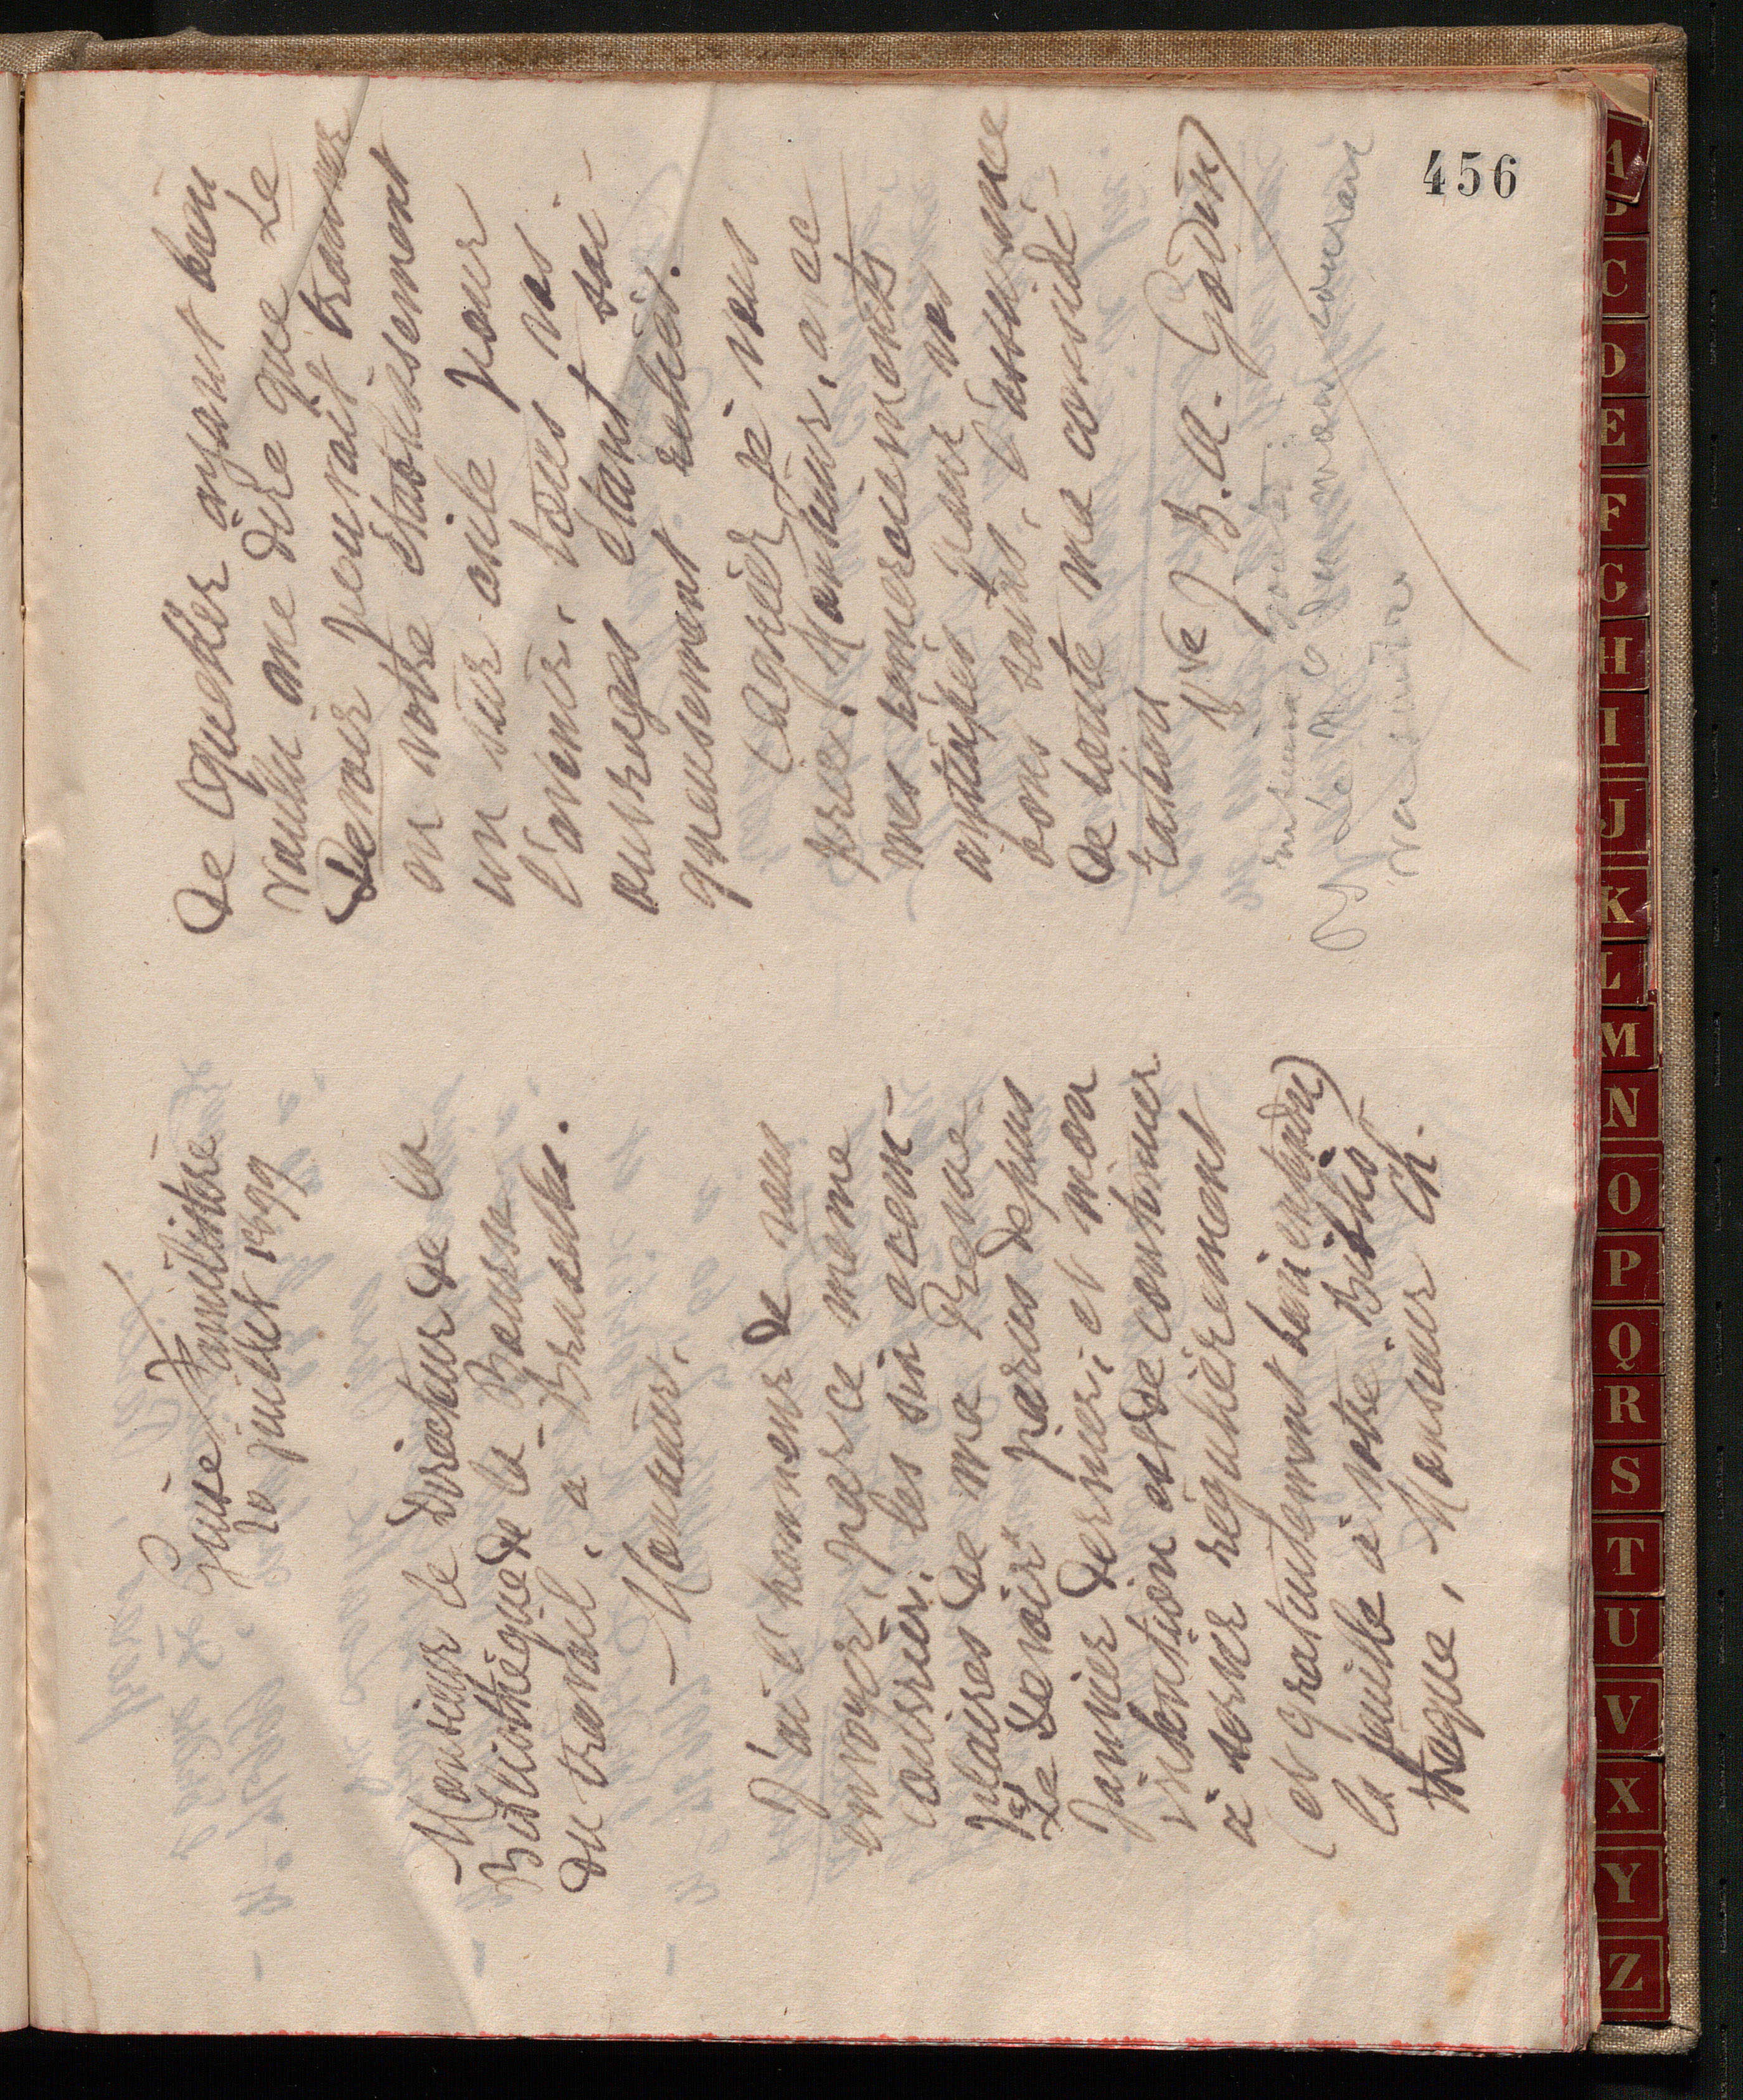 456
Guise Familistère
10 juillet 1899
Monsieur le Directeur de la
Bibliothèque de la Bourse
du travail, à Bruxelles.
Monsieur,
J'ai l'honneur de vous
envoyer, par ce même
courrier, les six exem-
plaires de ma Revue
Le Devoir parus depuis
Janvier dernier, et mon
intention est de continuer
à servir régulièrement
(et gratuitement bien entendu)
la feuille à votre Biblio-
thèque, Monsieur Ch.
de Quéker ayant bien
voulu me dire que Le
Devoir pourrait trouver
en votre établissement
un sûr asile pour
l'avenir, tous vos
ouvrages étant soi-
gneusement reliés.
Agréer je vous
prie, Monsieur, avec
mes remerciements
anticipés pour vos
bons soins, l'assurance
de toute ma considé-
ration
Vve J. B. A. Godin
Le N° du mois courant
va suivre